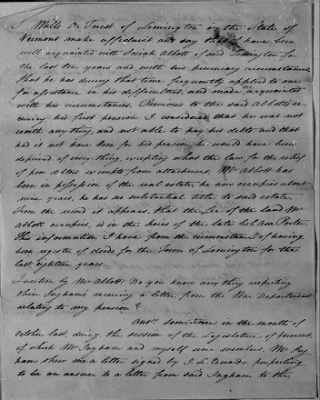 I Mills De Forest of Lemington in the State of
Vermont make affidavit and say that I have been
well acquainted with Josiah Abbott of said Lemington for
the last ten years and with his pecuniary circumstances
that he has during that time frequently applied to me
for assistance in his difficulties, and made me acquainted
with his circumstances. Previous to the said Abbotts re-
ceiving his first pension I considered that he was not
worth any thing, and not able to pay his debts and that
had it not have been for his pension he would have been
deprived of every thing, excepting what the law for the relief
of poor debtors exempts from attachment. Mr Abbott has
been in possession of the real estate he now occupies about
nine years, he has no substantial title to said estate
From the record it appears, that the fee of the land Mr
Abbott occupies, is in the heirs of the late Col. Porter
This information I have from the circumstance of having
been register of deeds for the Town of Lemington for the
last eighteen years.
Question by Mr Abbott. Do you know any thing respecting
Ingham's receiving a letter from the War Department
relating to my pension?
Ans. Sometime in the month of
October last, during the session of the Legislature of Vermont,
of which Mr Ingham and myself were members, Mr Ing
ham shew me a letter signed by J. L. Edwards, purporting
to be an answer to a letter from said Ingham to the